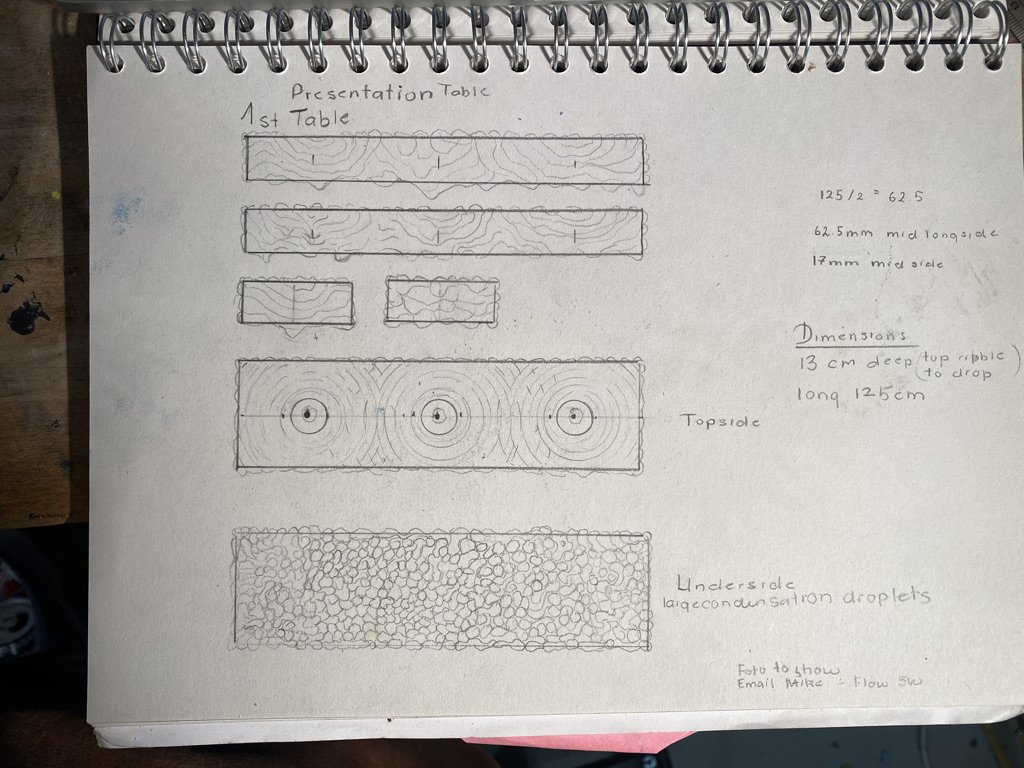 Presentation Table
1st Table
125/2 = 62.5
62.5mm mid longside
17mm mid side
Dimensions
13 cm deep (top ripple
to drop)
long 125cm
Topside
Underside
large condensation droplets
Foto to show
Email Mike : Flow